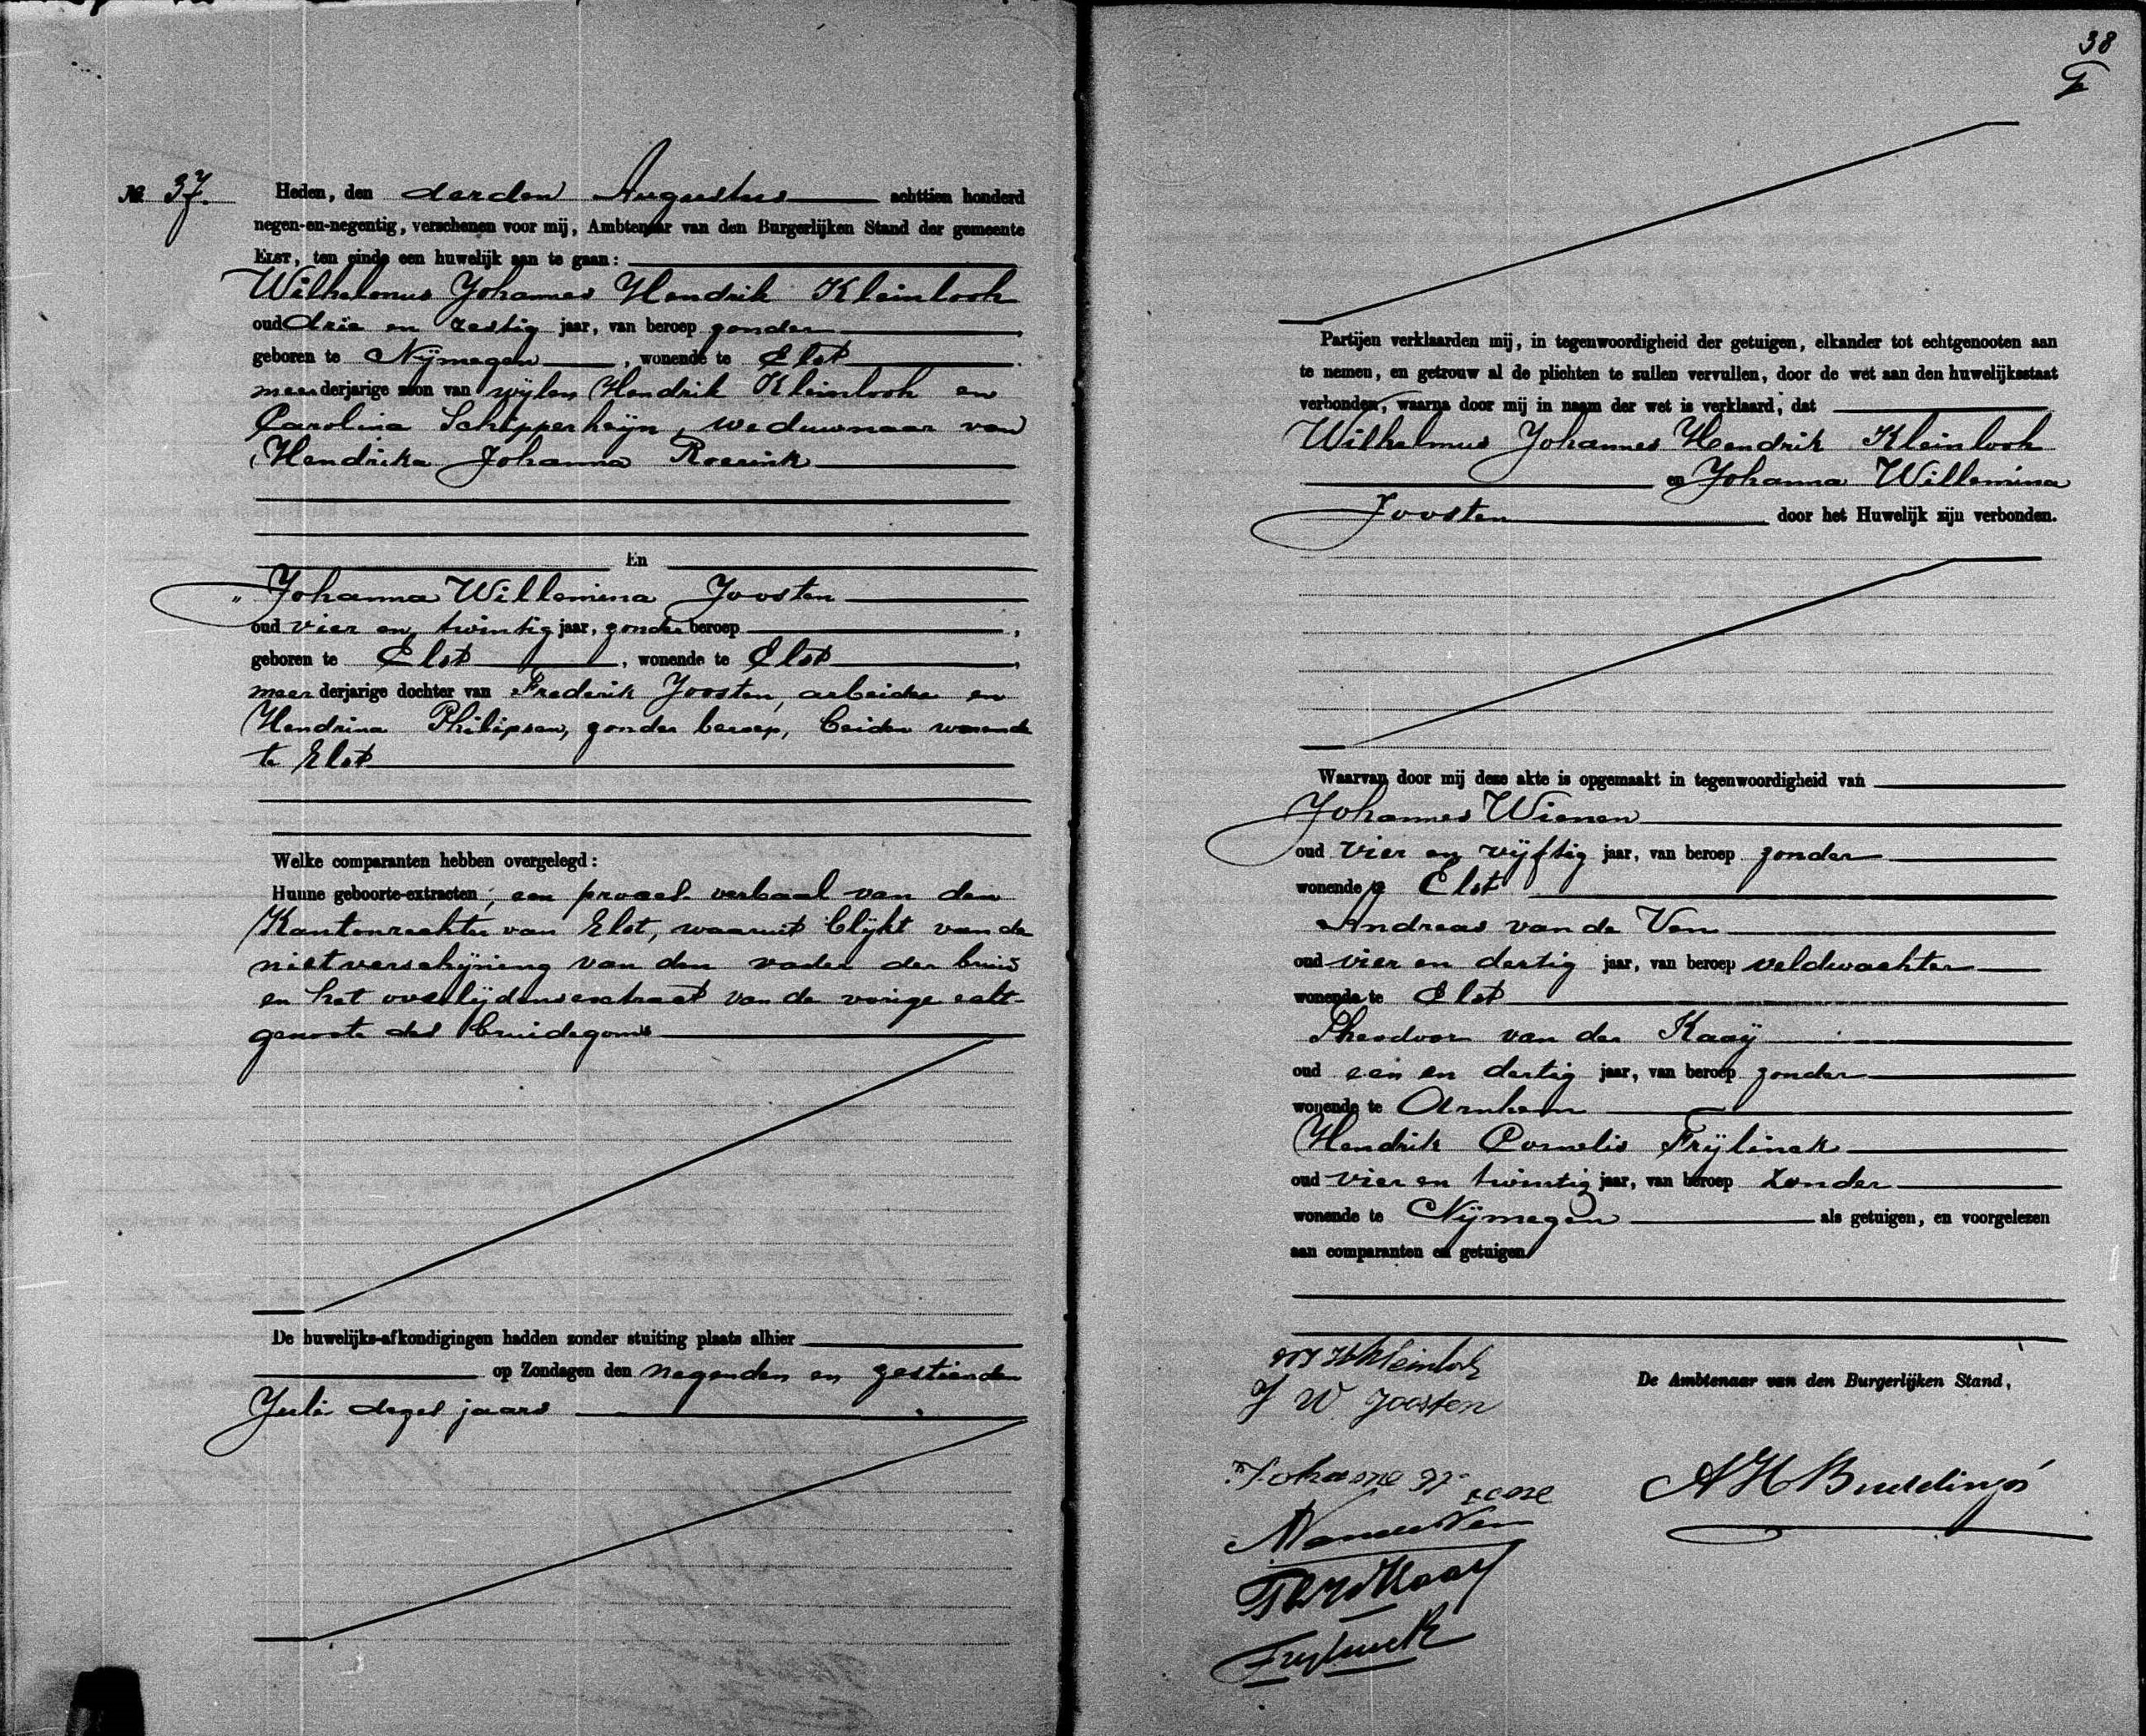 No 37. Heden, den derden Augustus achttien honderd
negen-en-negentig, verschenen voor mij, Ambtenaar van den Burgerlijken Stand der gemeente
ELST, ten einde een huwelijk aan te gaan:
Wilhelmus Johannes Hendrik Kleinlooh
oud drie en zestig jaar, van beroep zonder
geboren te Nijmegen, wonende te Elst
meerderjarige zoon van wijlen Hendrik Kleinlooh en
Carolina Schipperheijn, weduwnaar van
Hendrika Johanna Roerink
En
Johanna Willemina Joosten
oud vier en twintig jaar, zonder beroep,
geboren te Elst, wonende te Elst,
meerderjarige dochter van Frederik Joosten, arbeider en
Hendrina Philipsen, zonder beroep, beiden wonende
te Elst
Welke comparanten hebben overgelegd:
Hunne geboorte-extracten; een proces verbaal van den
Kantonrechter van Elst, waaruit blijkt van de
nietverschijning van den vader der bruid
en het overlijdensextract van de vorige echt-
genoote des bruidegoms
De huwelijks-afkondigingen hadden zonder stuiting plaats alhier
op Zondagen den negenden en zestienden
Juli dezes jaars
38
Partijen verklaarden mij, in tegenwoordigheid der getuigen, elkander tot echtgenooten aan
te nemen, en getrouw al de plichten te zullen vervullen, door de wet aan den huwelijksstaat
verbonden, waarna door mij in naam der wet is verklaard, dat
Wilhelmus Johannes Hendrik Kleinlooh
en Johanna Willemina
Joosten door het Huwelijk zijn verbonden.
Waarvan door mij deze akte is opgemaakt in tegenwoordigheid van
Johannes Wienen
oud vier en vijftig jaar, van beroep zonder
wonende te Elst
Andreas van de Ven
oud vier en dertig jaar, van beroep veldwachter
wonende te Elst
Theodoor van der Kaaij
oud een en dertig jaar, van beroep zonder
wonende te Arnhem
Hendrik Cornelis Frijlinck
oud vier en twintig jaar, van beroep zonder
wonende te Nijmegen als getuigen, en voorgelezen
aan comparanten en getuigen
Kleinlooh
De Ambtenaar van den Burgerlijken Stand,
J W Joosten
A H Buddingh
A van de Ven
Frijlinck